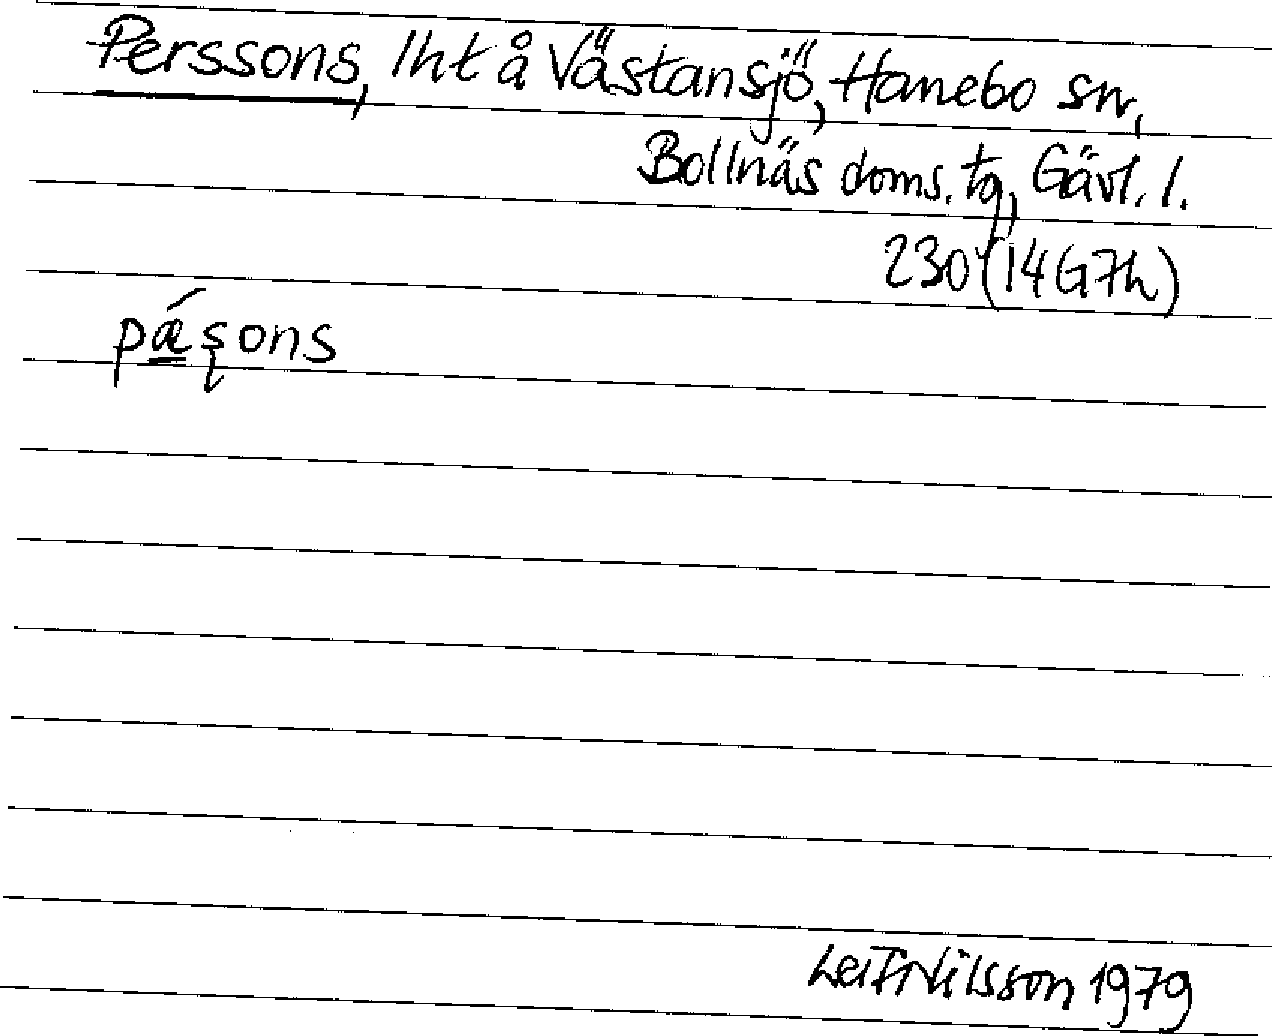 Perssons, lht å Västansjö, Hanebo sn,
Bollnäs doms. tg, Gävl. l.
230 (14G7h)
pǽşons
Leif Nilsson 1979